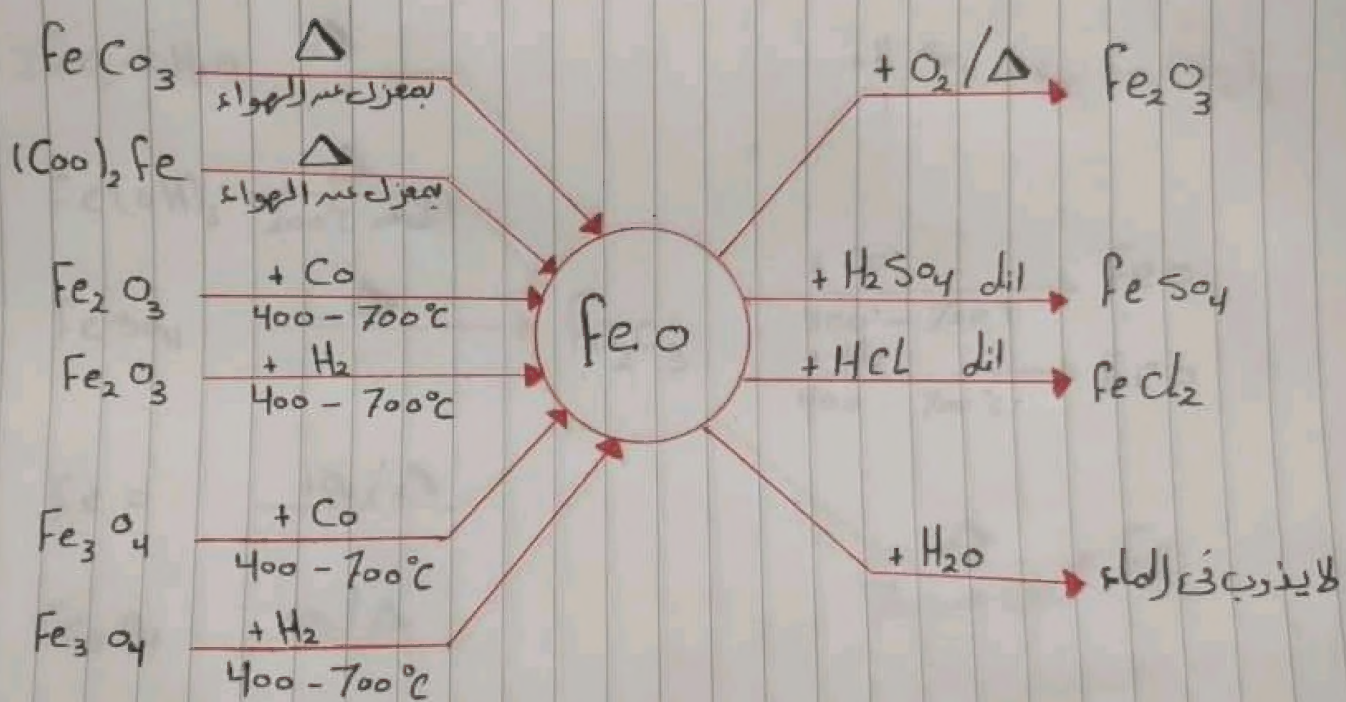 FeCo₃ Δ
بمعزل عن الهواء
(Coo)₂ Fe Δ
بمعزل عن الهواء
Fe₂O₃ + Co
400 - 700°C
Fe₂O₃ + H₂
400 - 700°C
Fe₃O₄ + Co
400 - 700°C
Fe₃O₄ + H₂
400 - 700°C
FeO
+ O₂/Δ Fe₂O₃
+ H₂SO₄ dil FeSO₄
+ HCL dil FeCl₂
+ H₂O لا يذوب فى الماء